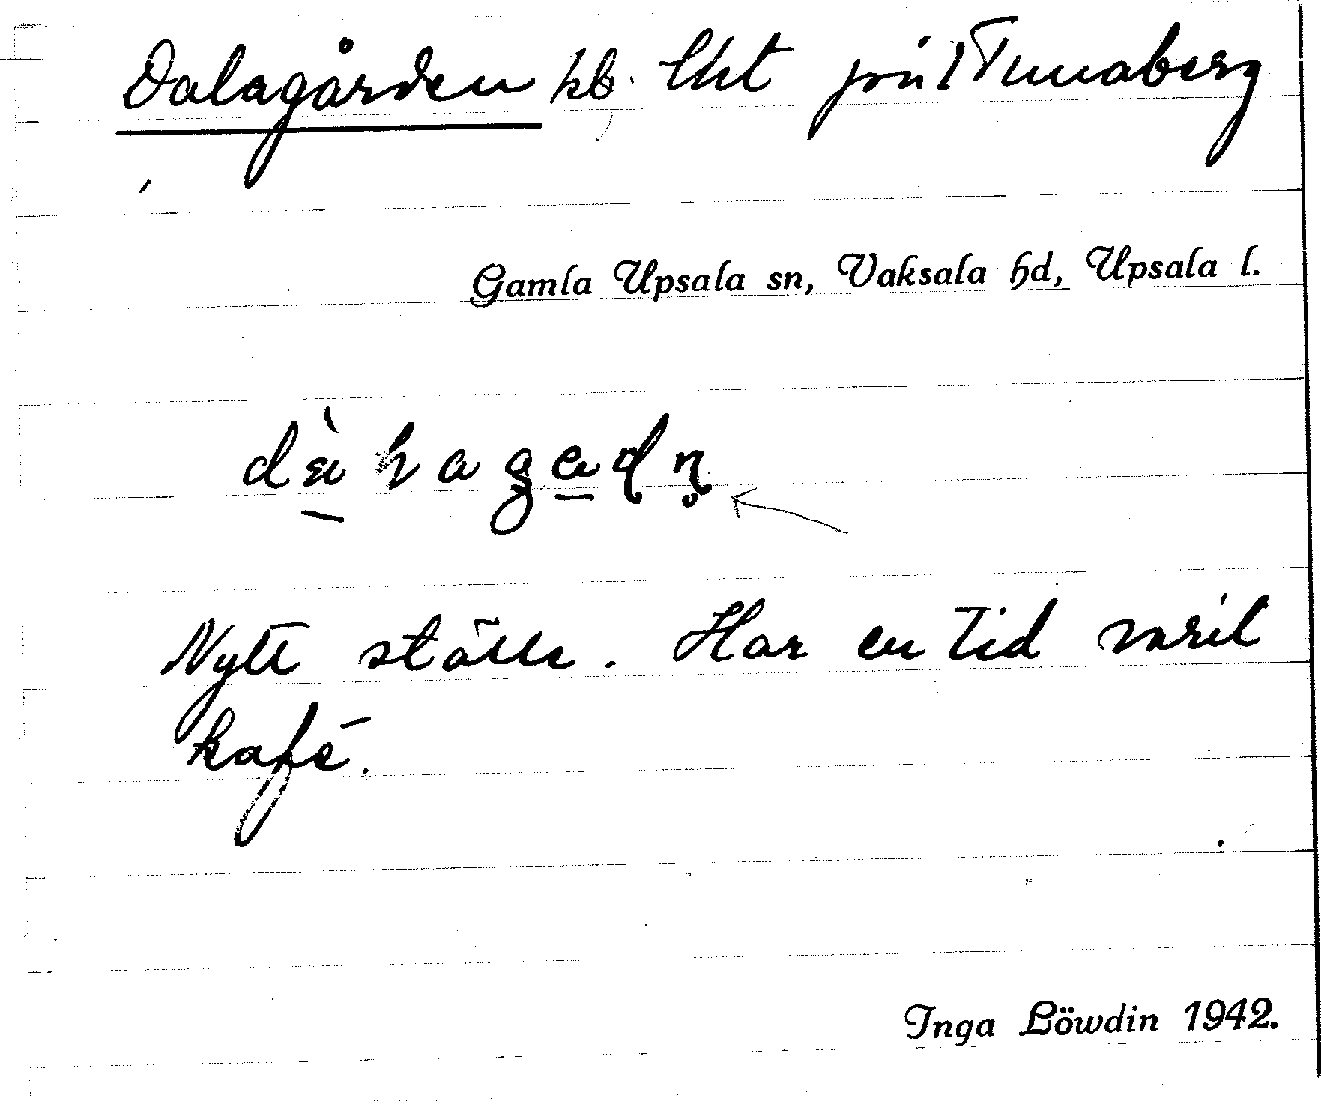 Dalagården hb. lht på 1 Tunaberg
Gamla Upsala sn, Vaksala hd, Upsala l.
Nytt ställe. Har en tid varit
kafé.
Inga Löwdin 1942.